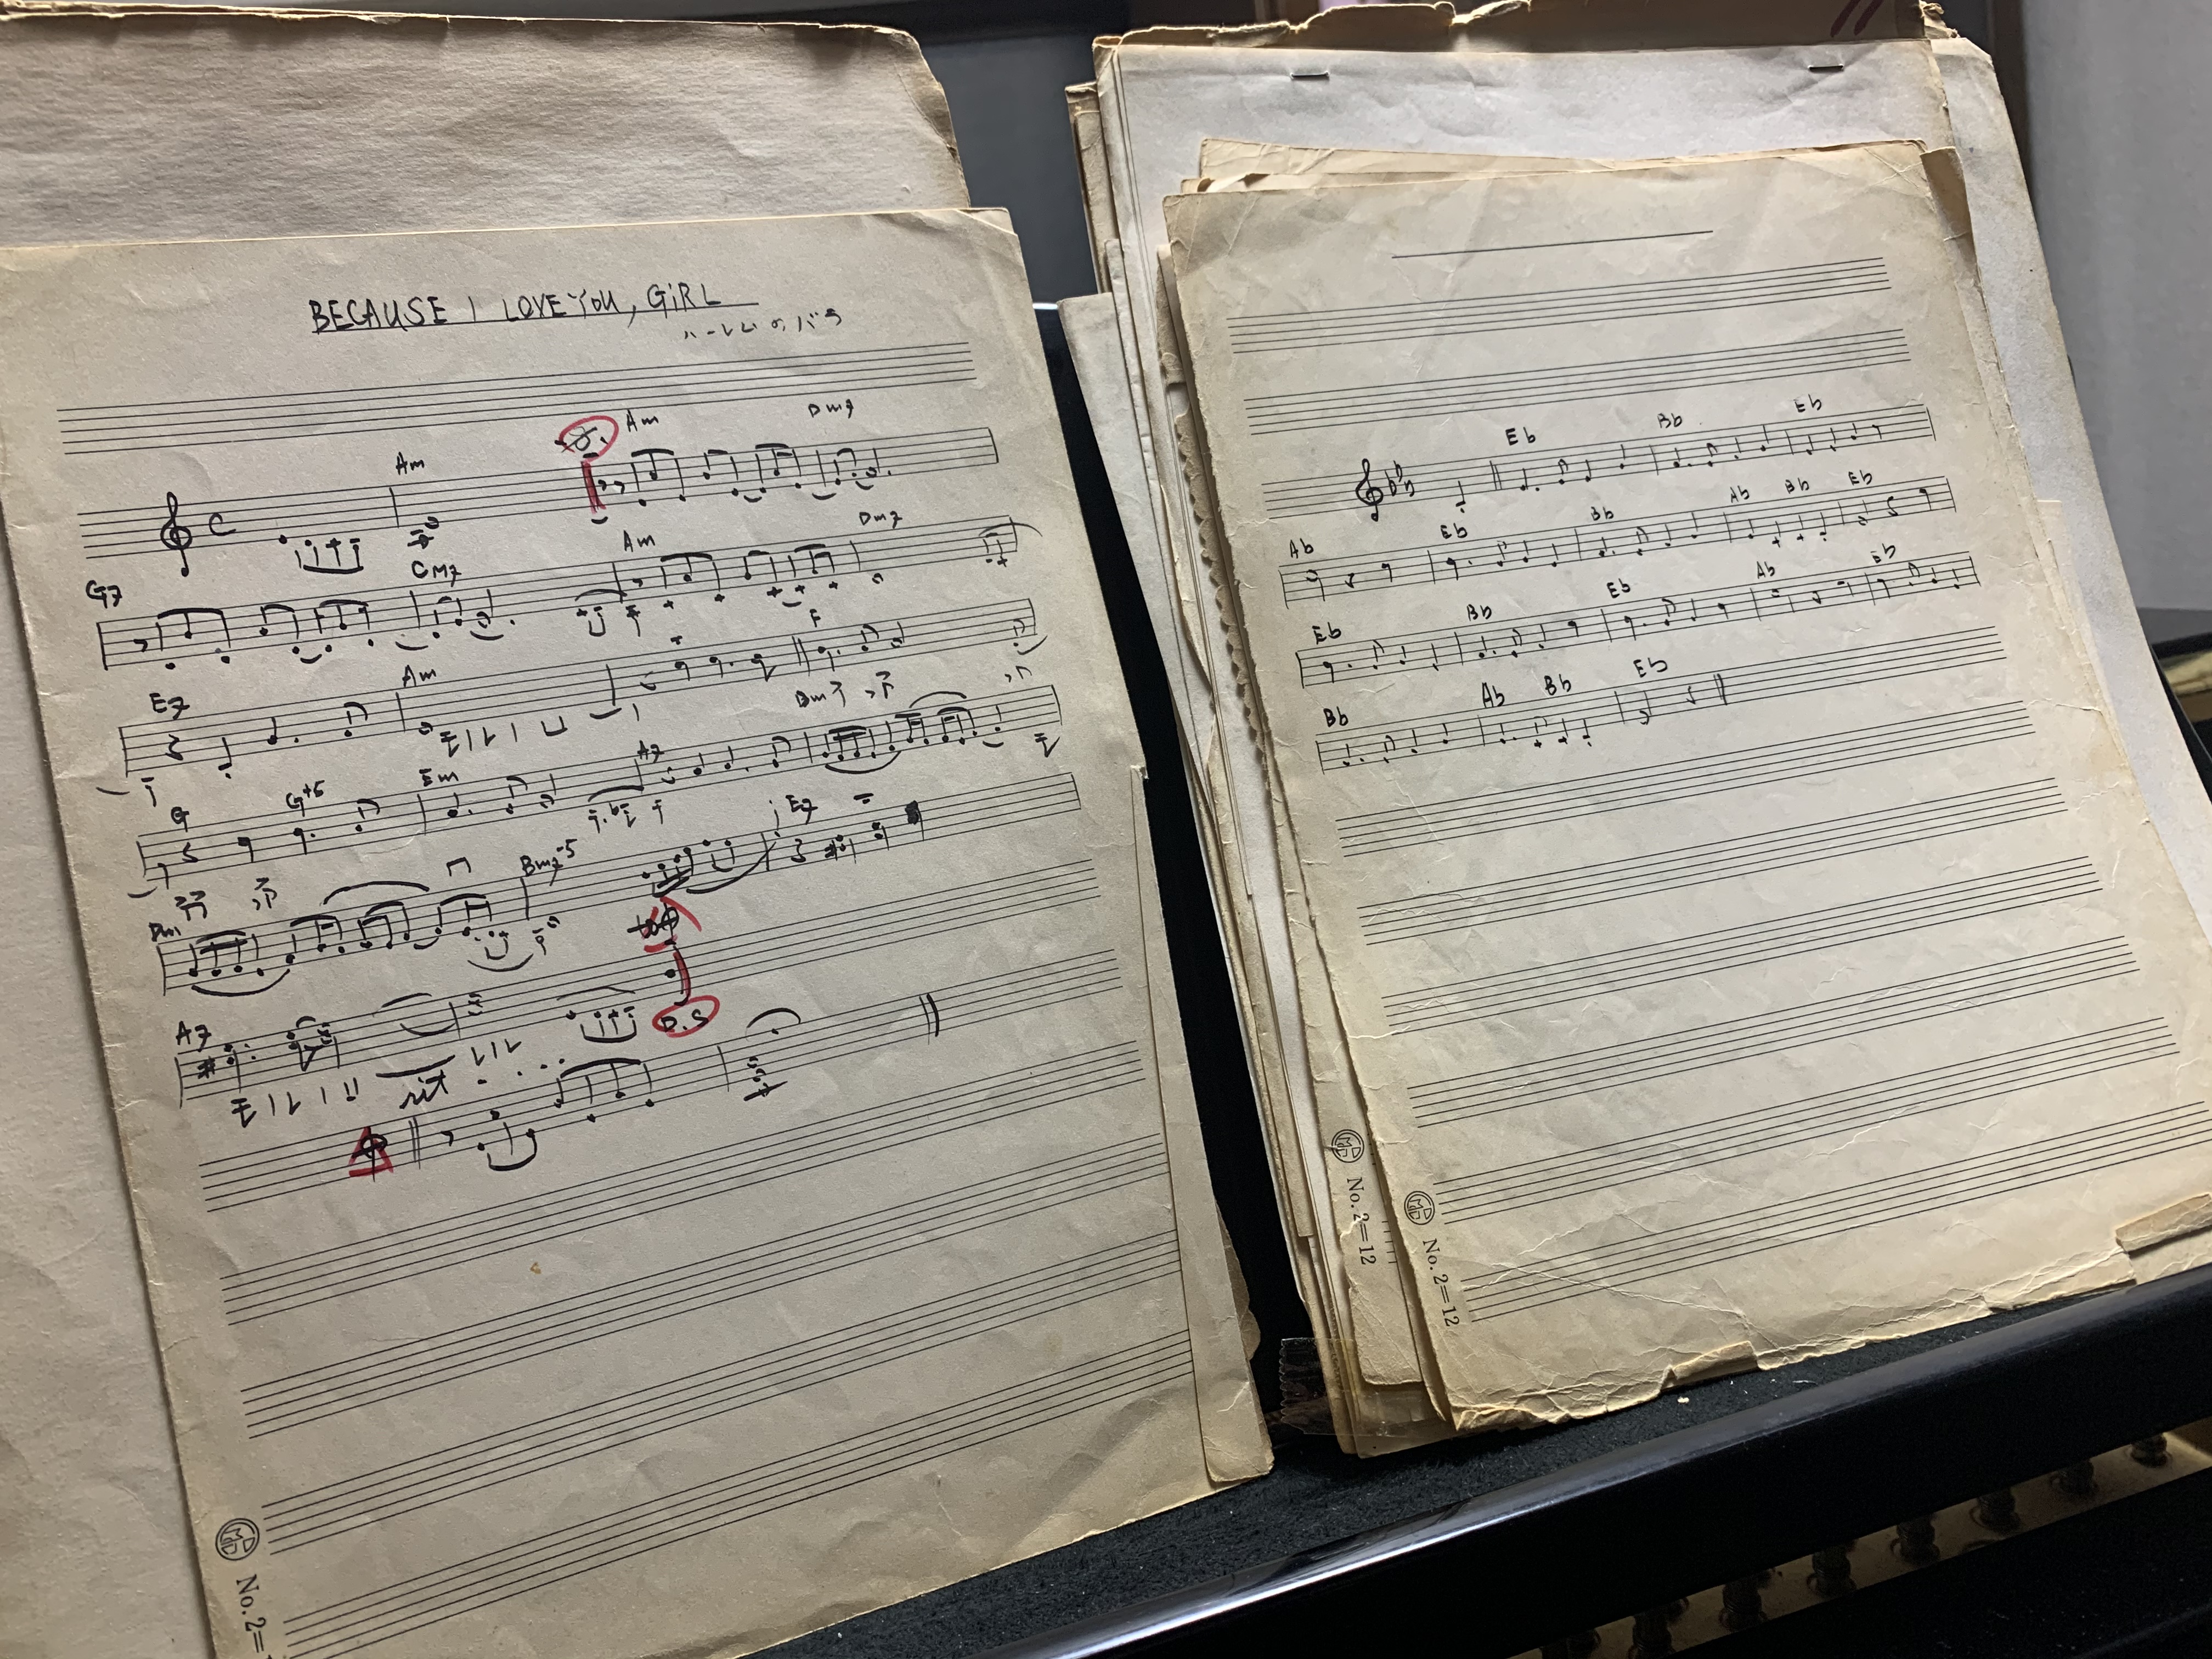 BECAUSE I LOVE YOU, GIRL
ハーレムのバラ
Am Am Dm7
C
G7 CM7 Am Dm7
E7 Am F
G G+5 Em A7 Bm7
Dm Bm7-5 E7
to
A7 D.S
rit . . .
No.2=
Eb Bb Eb
Ab Eb Bb Ab Bb Eb
Eb Bb Eb Ab Eb
Bb Ab Bb Eb
No.2=12
No.2=12